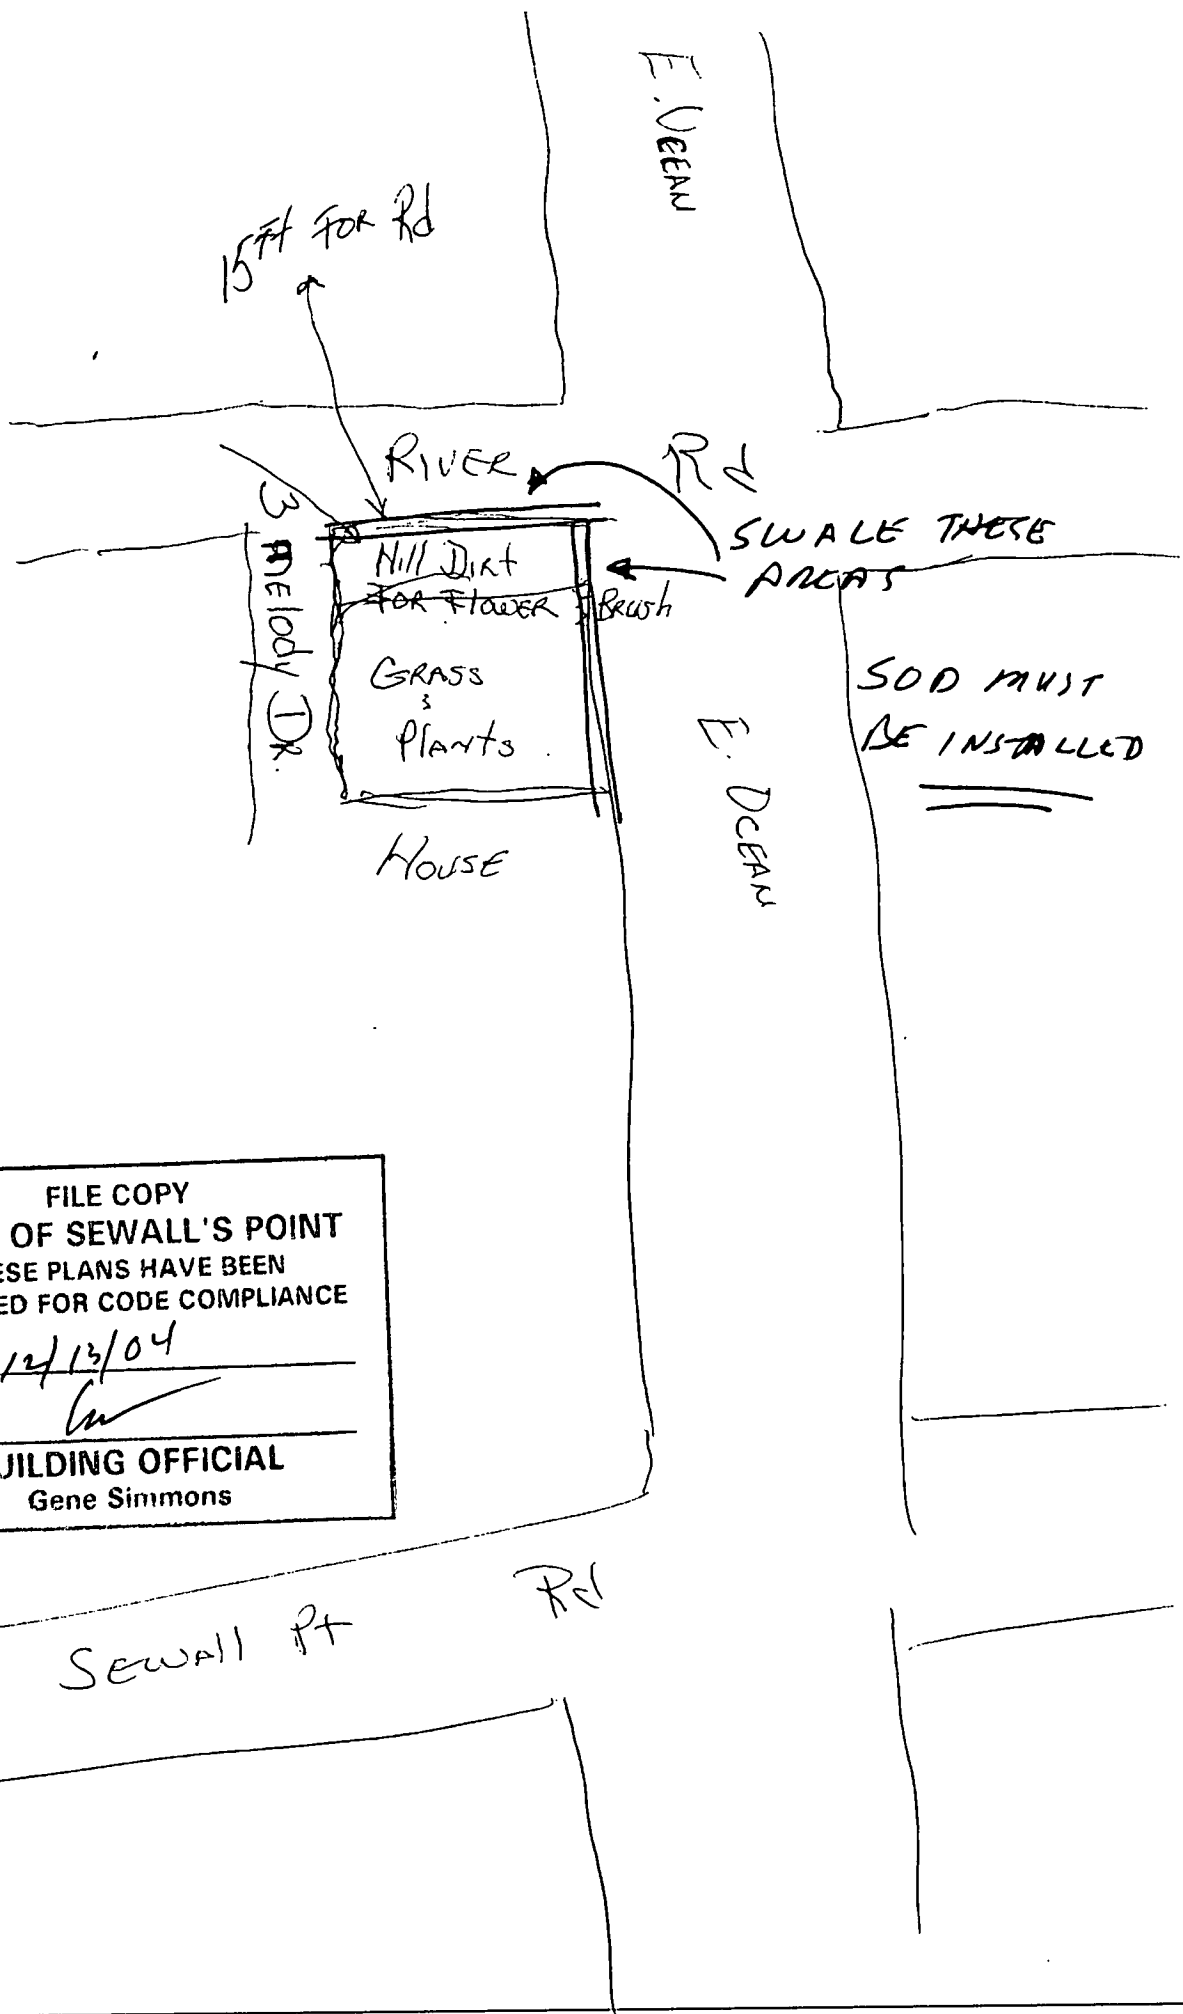 E. OCEAN
15 Ft FOR Rd
RIVER Rd
SWALE THESE
AREAS
3 MElody DR.
Hill Dirt
FOR FlOWER
Brush
GRASS
&
PlANTS
SOD MUST
BE INSTALLED
E. OCEAN
HOUSE
FILE COPY
OF SEWALL'S POINT
ESE PLANS HAVE BEEN
ED FOR CODE COMPLIANCE
12/13/04
UILDING OFFICIAL
Gene Simmons
SEWAll Pt Rd